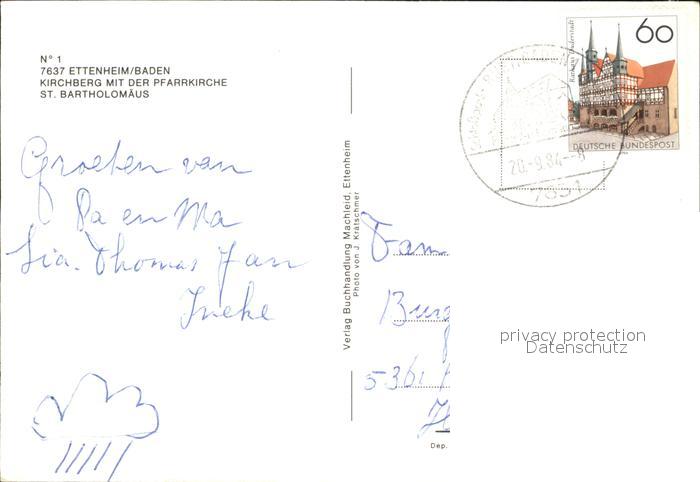 N° 1
7637 ETTENHEIM/BADEN
KIRCHBERG MIT DER PFARRKIRCHE
ST. BARTHOLOMÄUS
Groeten van
Pa en Ma
Lia. Thomas Jan
Ineke
Verlag Buchhandlung Machleid, Ettenheim
Photo von J. Krätschmer
60
Rathaus Duderstadt
DEUTSCHE BUNDESPOST
20.-9.84.-8
7631
Fam
Burg
5361
privacy protection
Datenschutz
Dep.